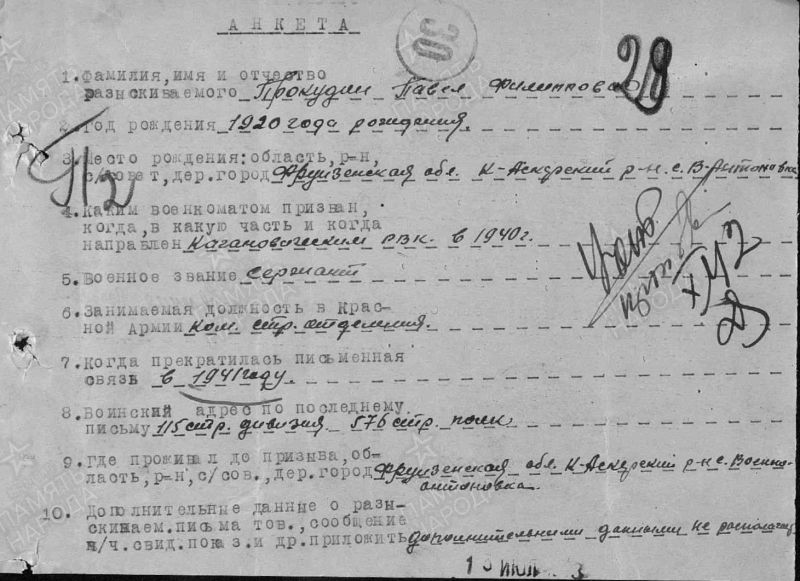 АНКЕТА
30
28
1. Фамилия, имя и отчество
разыскиваемого Прокудин Павел Филиппович
2. Год рождения 1920 года рождения.
3. Место рождения: область, р-н,
с/совет, дер. город Фрунзенская обл. К-Аскерский р-н. с. В-Антоновка
4. Каким военкоматом призван,
когда, в какую часть и когда
направлен Кагановическим РВК. в 1940г.
5. Военное звание сержант
6. Занимаемая должность в Крас-
ной Армии Ком. стр. отделения.
7. Когда прекратилась письменная
связь в 1941 году.
8. Воинский адрес по последнему
письму 115 стр. дивизия 576 стр. полк
9. Где проживал до призыва, об-
ласть, р-н, с/сов., дер. город Фрунзенская обл. К-Аскерский р-н с. Военно-
антоновка.
10. Дополнительные данные о разы-
скиваем. письма тов., сообщение
в/ч. свид. показ. и др. приложить дополнительными данными не располагаю
ПАМЯТЬ
НАРОДА